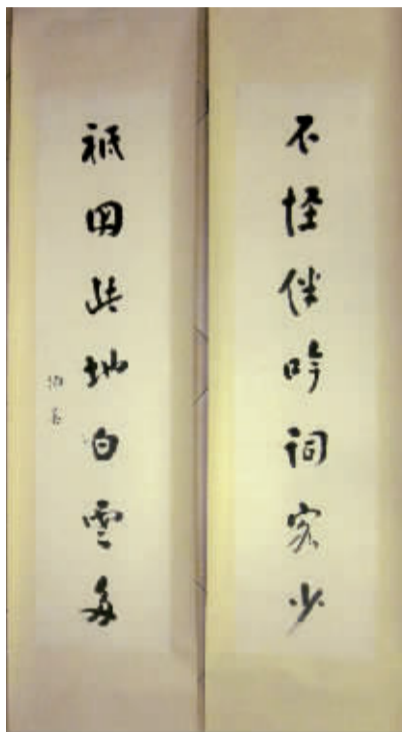 不怪伴吟詞客少
祗因此地白雲多